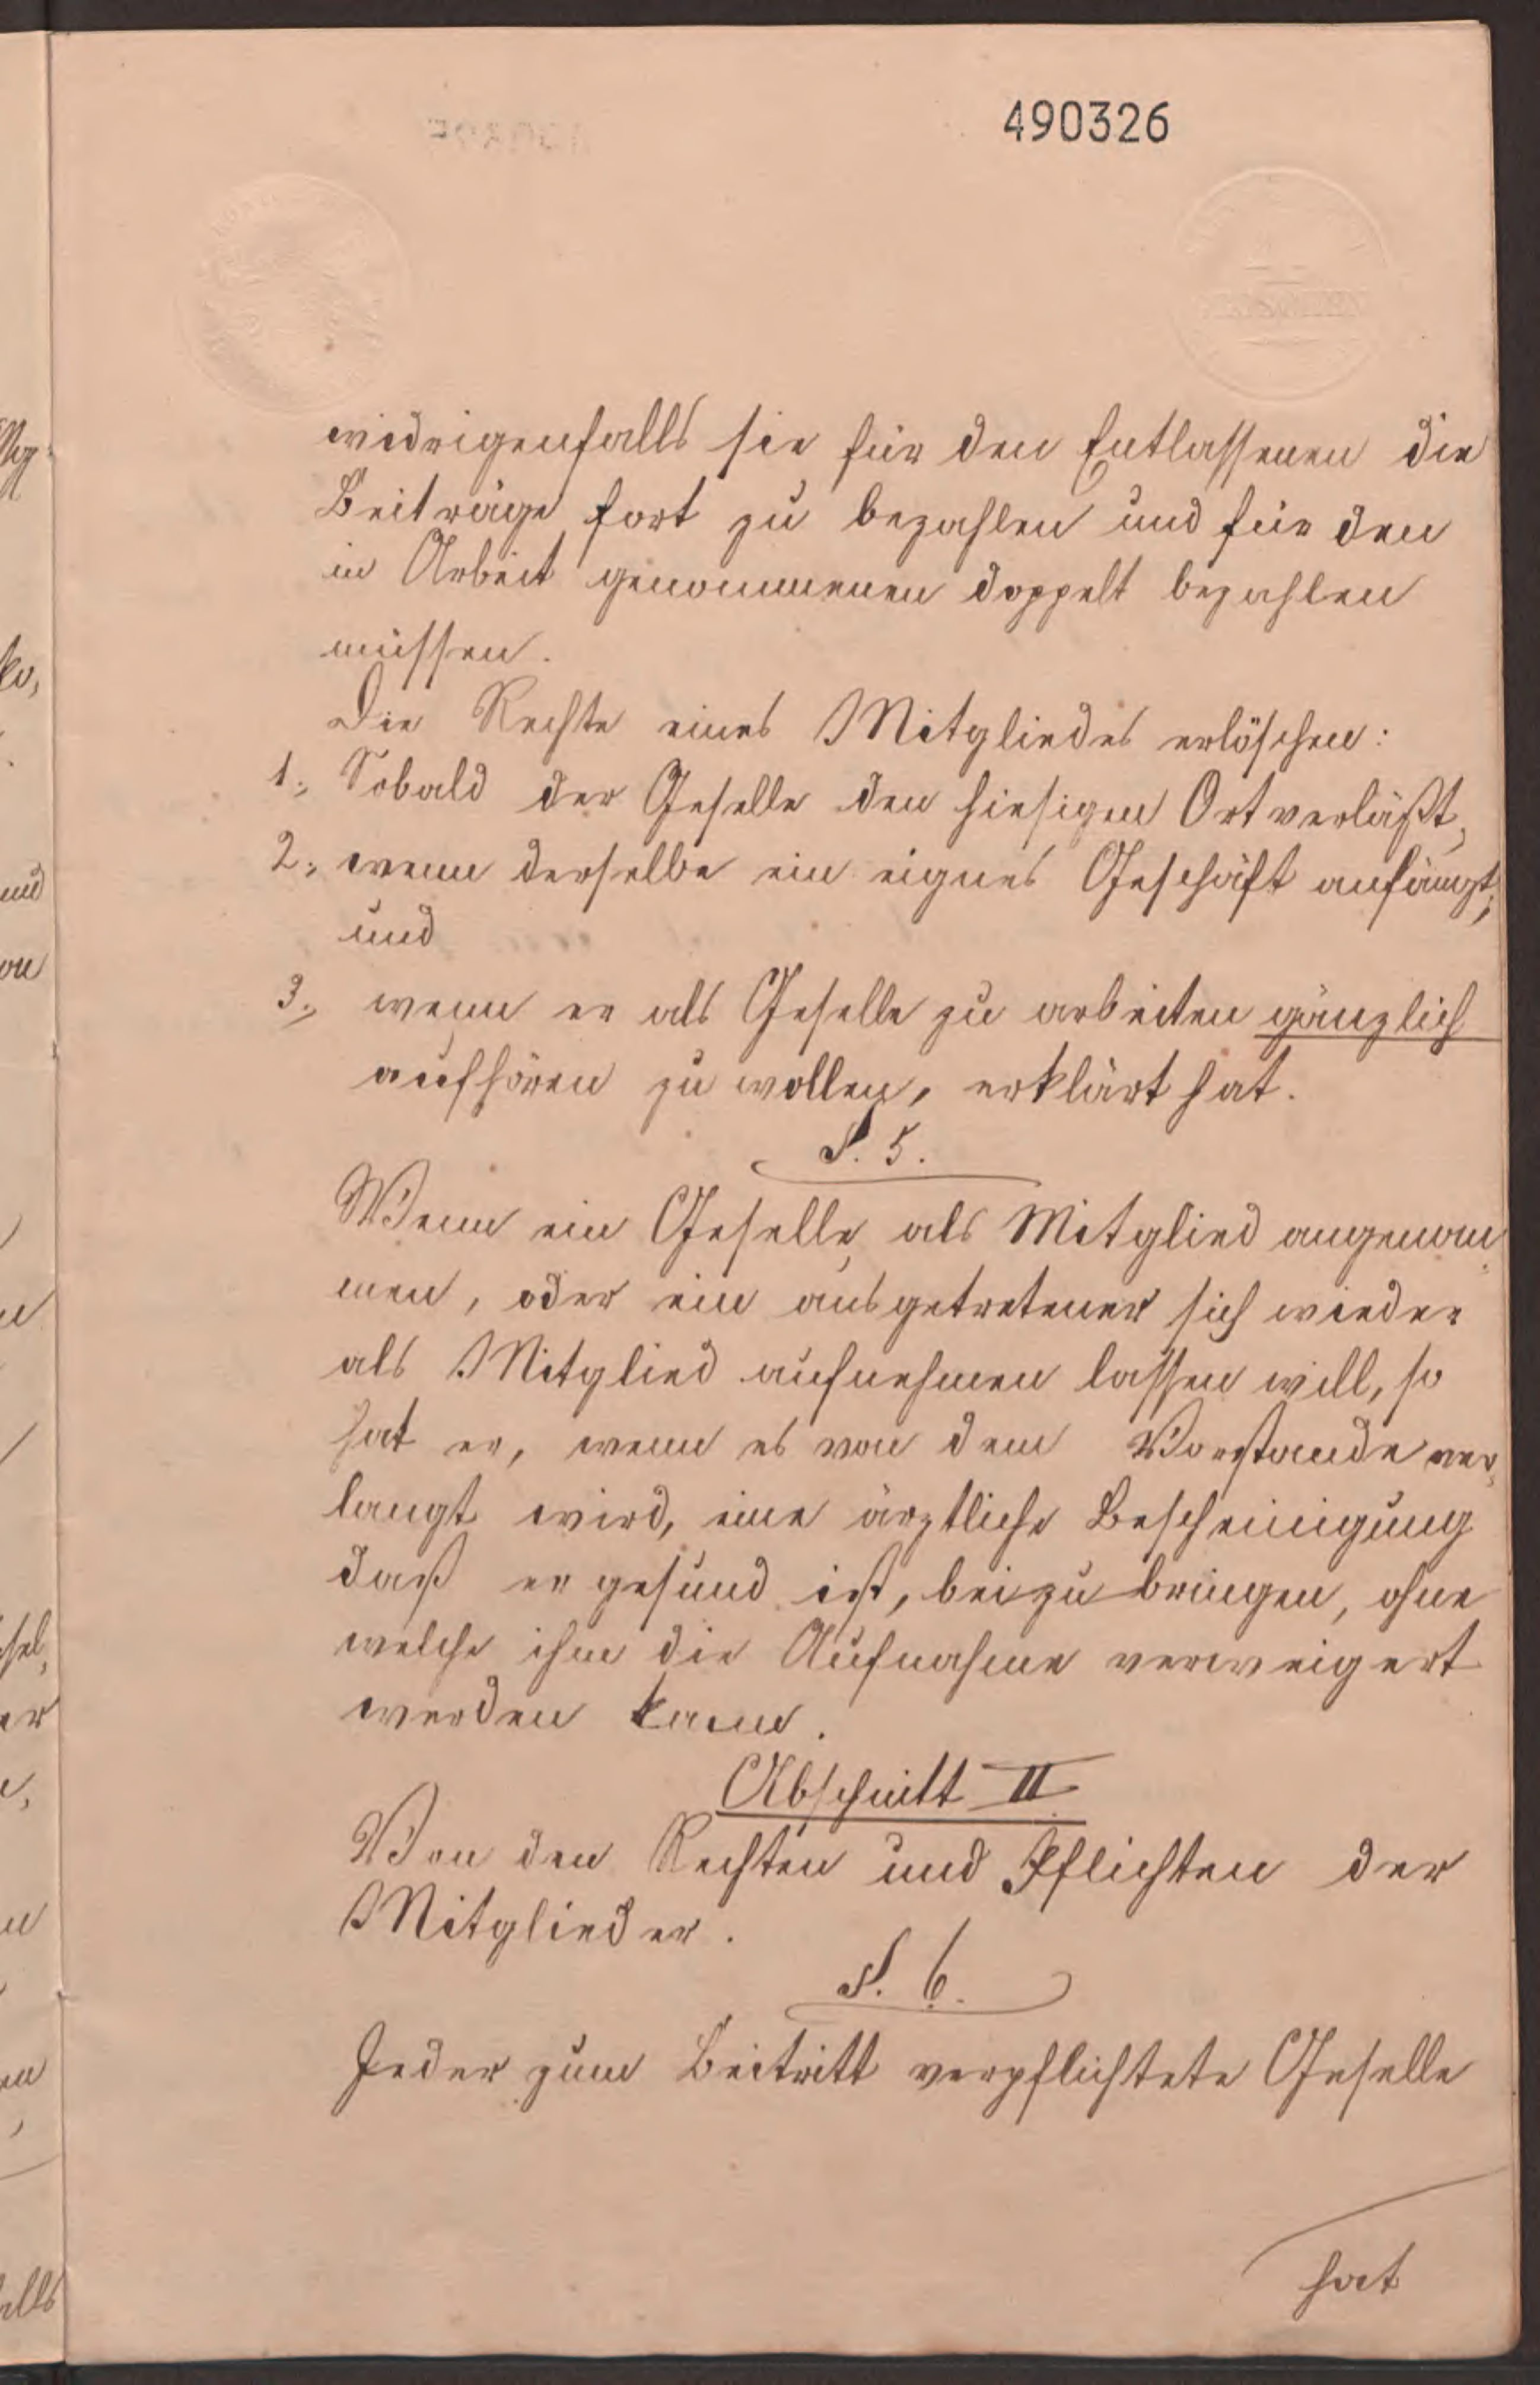 490326
widrigenfalls sie für den Entlassenen die
Beiträge fort zu bezahlen und für den
in Arbeit genommenen doppelt bezahlen
müssen.
Die Rechte eines Mitgliedes erlöschen:
1., Sobald der Geselle den hiesigen Ort verläßt,
2., wenn derselbe ein eignes Geschäft anfängt;
und
3., wenn er als Geselle zu arbeiten gänzlich
aufhören zu wollen, erklärt hat.
§. 5.
Wenn ein Geselle als Mitglied angenom-
men, oder ein ausgetretener sich wieder
als Mitglied aufnehmen lassen will, so
hat er, wenn es von dem Vorstande ver-
langt wird, eine ärztliche Bescheinigung
daß er gesund ist, beizubringen, ohne
welche ihm die Aufnahme verweigert
werden kann.
Abschnitt II
Von den Rechten und Pflichten der
Mitglieder.
§. 6.
Jeder zum Beitritt verpflichtete Geselle
hat